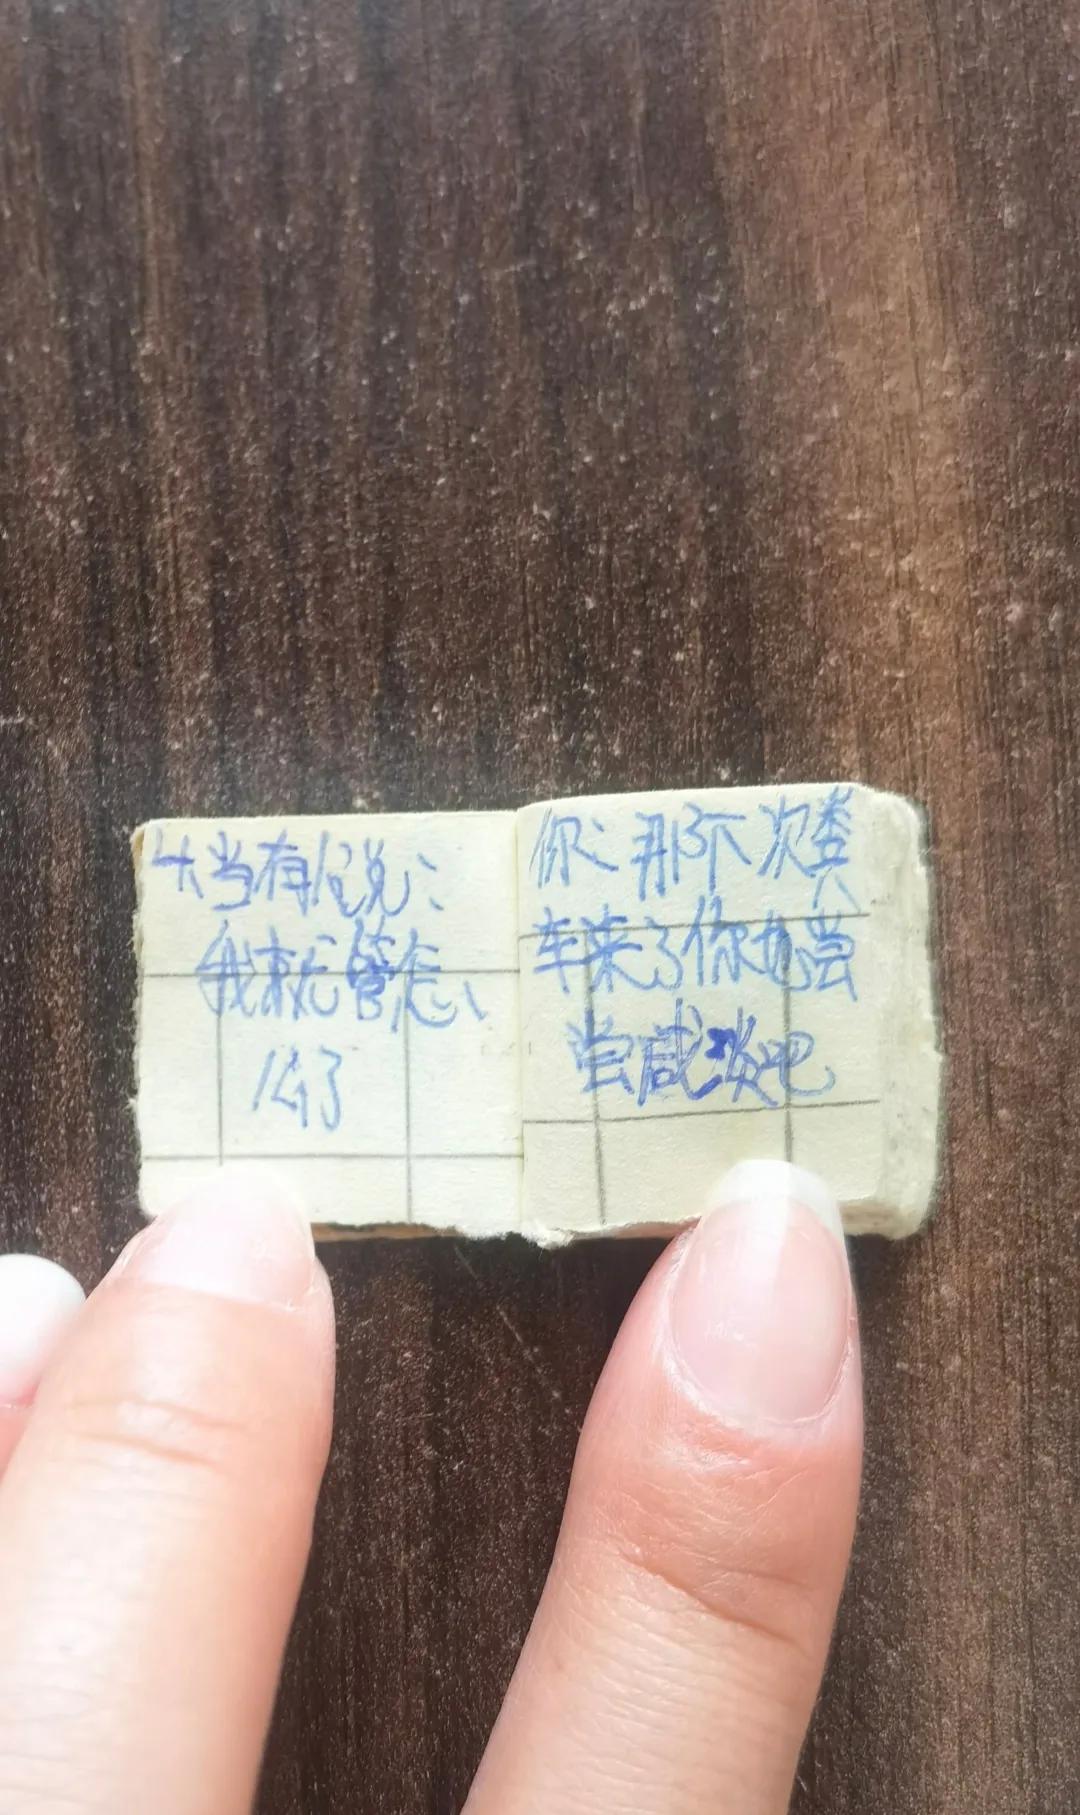 4、当有人说：
我就管怎
么了
你：那下次粪
车来了你也尝
尝咸淡吧